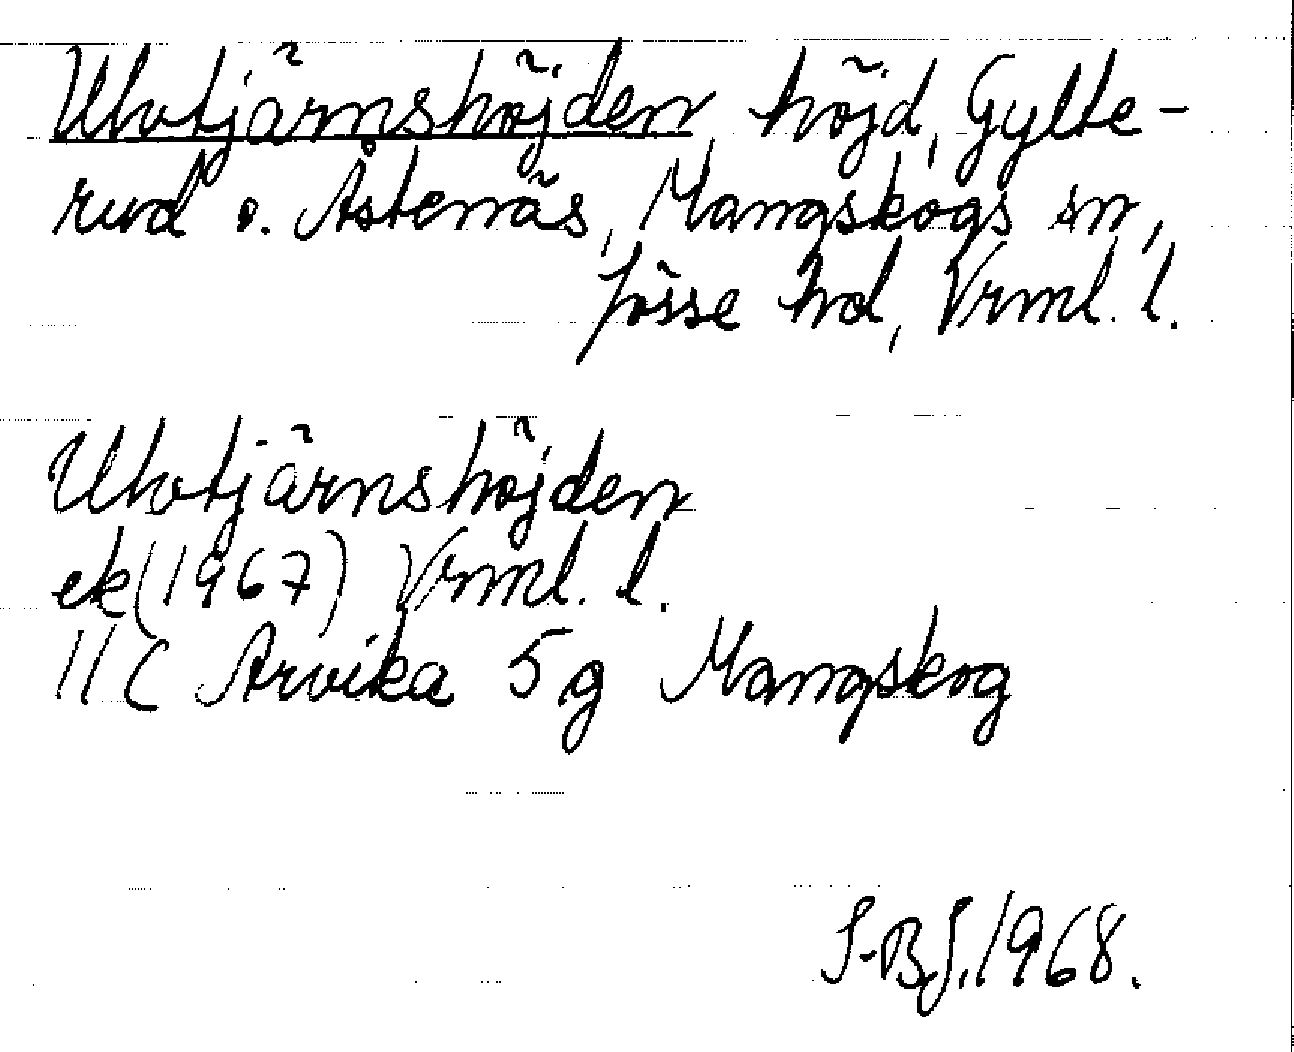 Ulvtjärnshöjden, höjd, Gylte-
rud o. Åstenäs, Mangskogs sn,
Jösse hd, Vrml. l.
Ulvtjärnshöjden
ek (1967) Vrml. l.
11C Arvika 5g Mangskog
S-B.J. 1968.